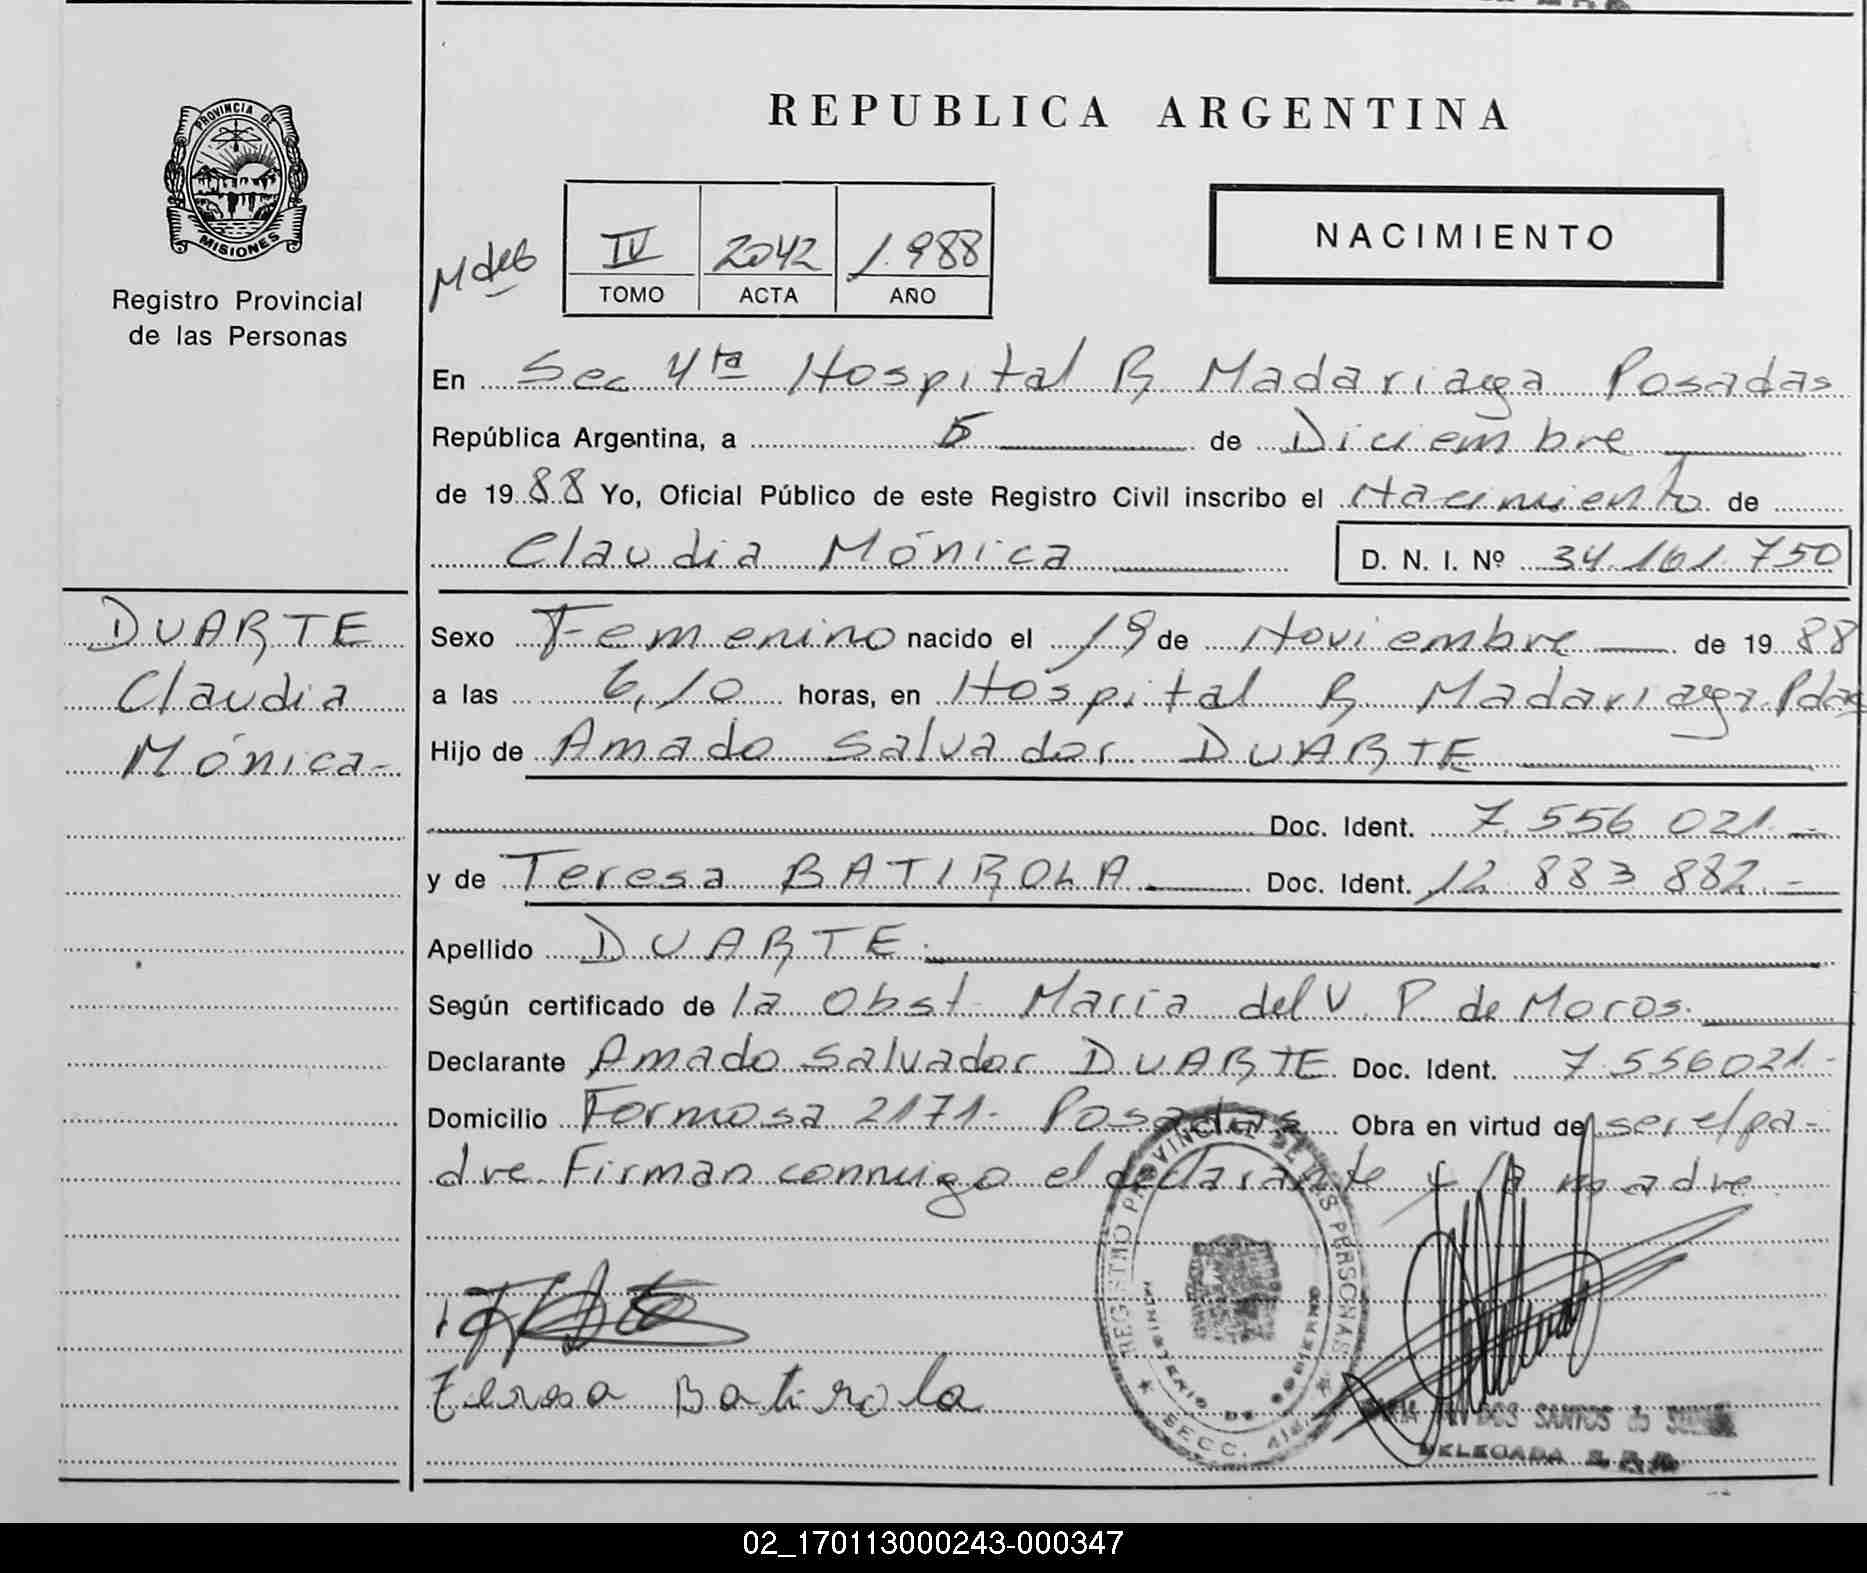 PROVINCIA DE
MISIONES
Registro Provincial
de las Personas
DUARTE
Claudia
Mónica-
REPUBLICA ARGENTINA
IV 2042 1.988
TOMO ACTA AÑO
NACIMIENTO
En Sec 4ta Hospital R Madariaga Posadas
República Argentina, a 5 de Diciembre
de 1988 Yo, Oficial Público de este Registro Civil inscribo el Nacimiento de
Claudia Mónica D. N. I. Nº 34.161.750
Sexo Femenino nacido el 19 de Noviembre de 1988
a las 6,10 horas, en Hospital R Madariaga. Pdas
Hijo de Amado Salvador DUARTE
Doc. Ident. 7.556 021.-
y de Teresa BATIROLA Doc. Ident. 12 883 882.-
Apellido DUARTE.
Según certificado de la Obst. María del V. P. de Moros.
Declarante Amado Salvador DUARTE Doc. Ident. 7.556021.-
Domicilio Formosa 2171- Posadas Obra en virtud de ser el pa-
dre. Firman conmigo el declarante y la madre
REGISTRO PROVINCIAL DE LAS PERSONAS
MINISTERIO DE GOBIERNO
SECC. 4ta
Teresa Batirola
DOS SANTOS de
DELEGADA
02_170113000243-000347